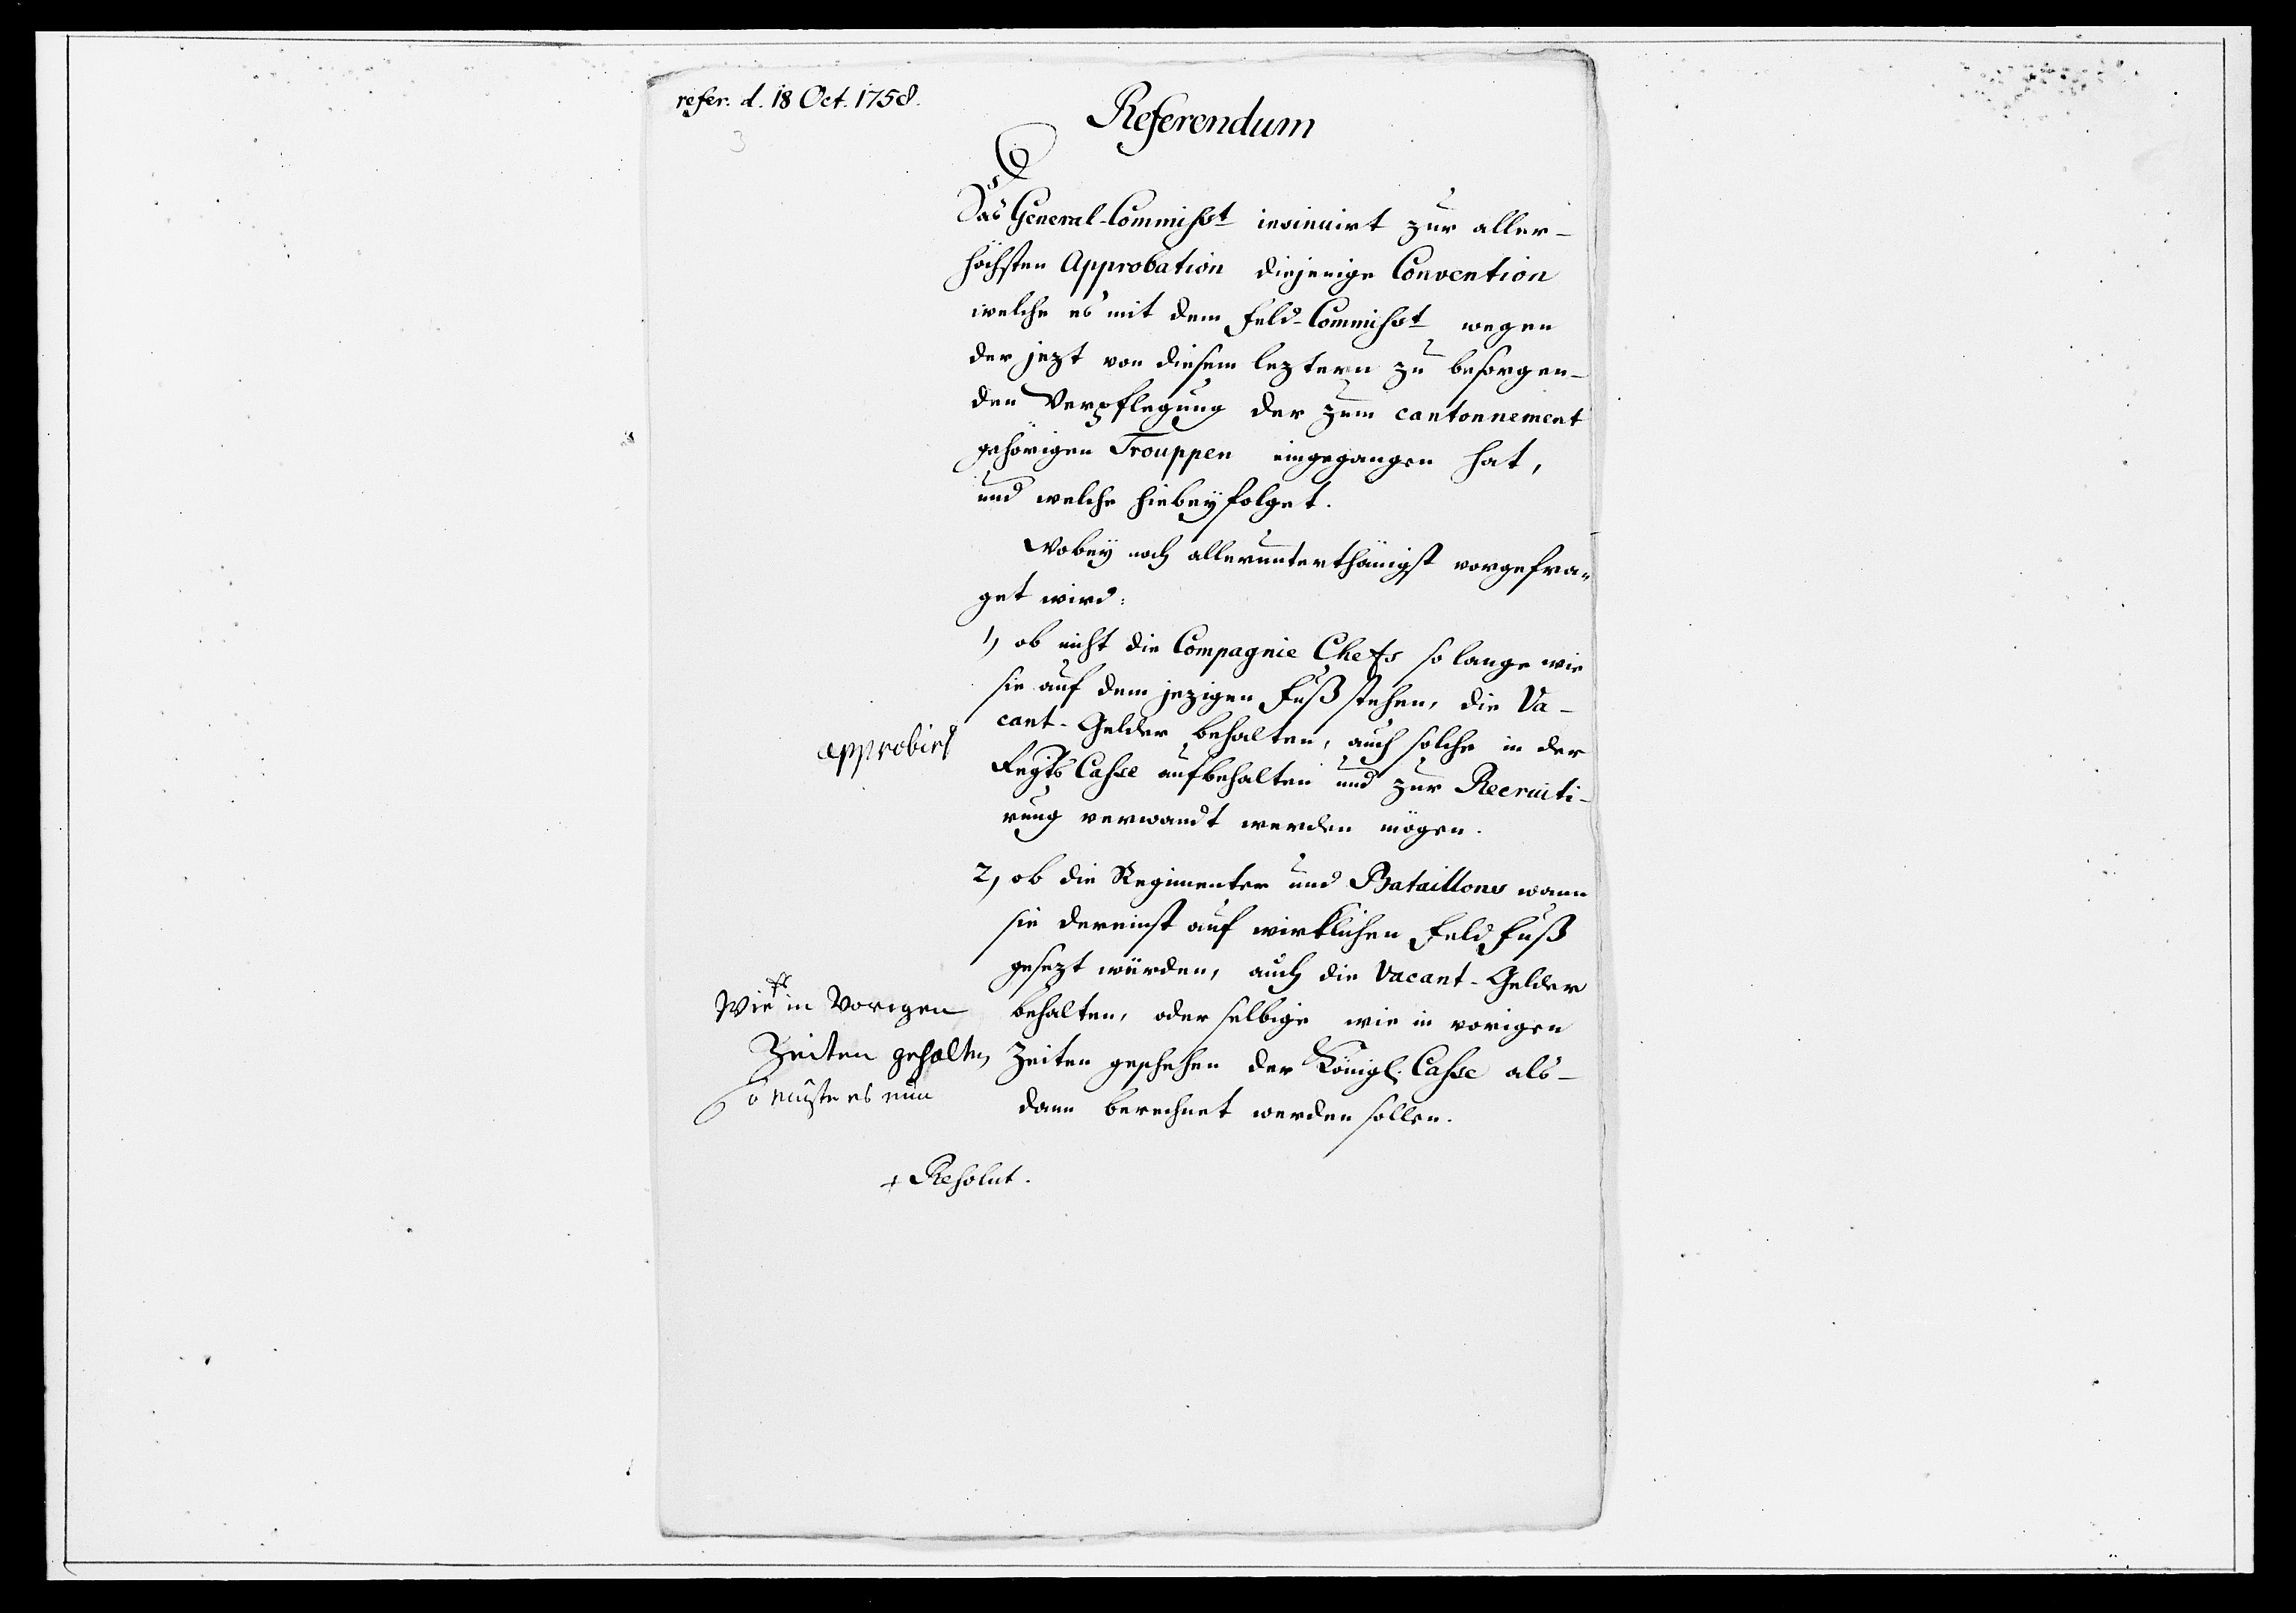 refer. d. 18 Oct. 1758.
3
Referendum
Das General-Commisst insinuirt zur aller-
höchsten Approbation diejenige Convention
welche es mit dem Feld-Commisst wegen
der jezt von diesem leztern zu besorgen-
den Verpflegung der zum cantonnement
gehörigen Trouppen eingegangen hat,
und welche hiebey folget.
Wobey noch allerunterthänigst vorgefra-
get wird:
1, ob nicht die Compagnie Chefs so lange wie
sie auf dem jezigen Fuß stehen, die Va-
cant-Gelder behalten, auch solche in der
Regts Casse aufbehalten und zur Recruiti-
rung verwandt werden mögen.
approbirt
2, ob die Regimenter und Bataillons wann
sie dereinst auf wirklichen Feld Fuß
gesezt würden, auch die Vacant-Gelder
behalten, oder selbige wie in vorigen
Zeiten geschehen der Königl. Casse als-
dann berechnet werden sollen.
Wie + in Vorigen
Zeiten gehalten
so müste es nun
+ Resolut.